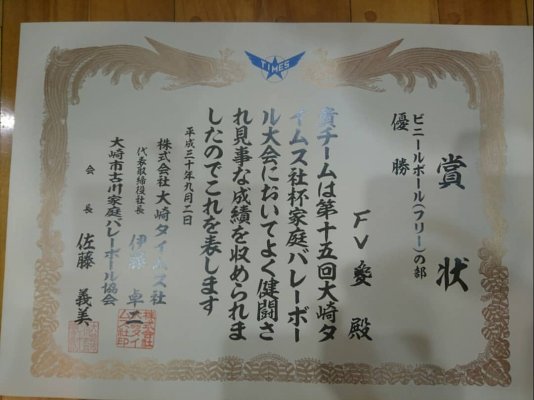 TIMES
賞状
ビニールボール(フリー)の部
優勝
FV愛殿
貴チームは第十五回大崎タ
イムス社杯家庭バレーボー
ル大会においてよく健闘さ
れ見事な成績を収められま
したのでこれを表します
平成三十年九月二日
株式会社大崎タイムス社
代表取締役社長 伊藤卓二
大崎市古川家庭バレーボール協会
会長 佐藤義美